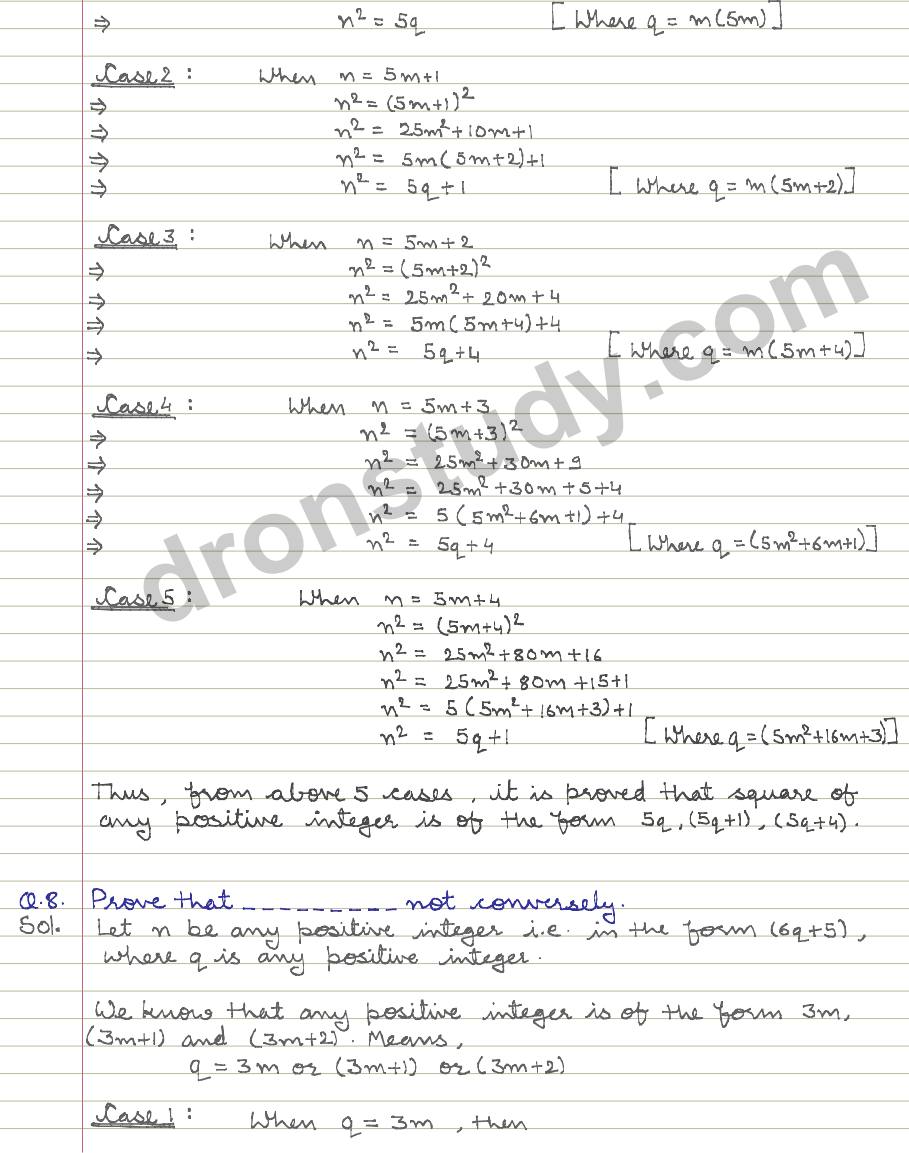 ⇒ n² = 5q [Where q = m(5m)]
Case 2 : When n = 5m+1
⇒ n² = (5m+1)²
⇒ n² = 25m²+10m+1
⇒ n² = 5m(5m+2)+1
⇒ n² = 5q+1 [Where q = m(5m+2)]
Case 3 : When n = 5m+2
⇒ n² = (5m+2)²
⇒ n² = 25m²+20m+4
⇒ n² = 5m(5m+4)+4
⇒ n² = 5q+4 [Where q = m(5m+4)]
Case 4 : When n = 5m+3
⇒ n² = (5m+3)²
⇒ n² = 25m²+30m+9
⇒ n² = 25m²+30m+5+4
⇒ n² = 5(5m²+6m+1)+4
⇒ n² = 5q+4 [Where q = (5m²+6m+1)]
Case 5 : When n = 5m+4
n² = (5m+4)²
n² = 25m²+80m+16
n² = 25m²+80m+15+1
n² = 5(5m²+16m+3)+1
n² = 5q+1 [Where q = (5m²+16m+3)]
Thus, from above 5 cases, it is proved that square of
any positive integer is of the form 5q, (5q+1), (5q+4).
Q.8. Prove that _ _ _ _ _ _ _ _ _ _ not conversely.
Sol. Let n be any positive integer i.e. in the form (6q+5),
where q is any positive integer.
We know that any positive integer is of the form 3m,
(3m+1) and (3m+2). Means,
q = 3m or (3m+1) or (3m+2)
Case 1 : When q = 3m, then
dronstudy.com